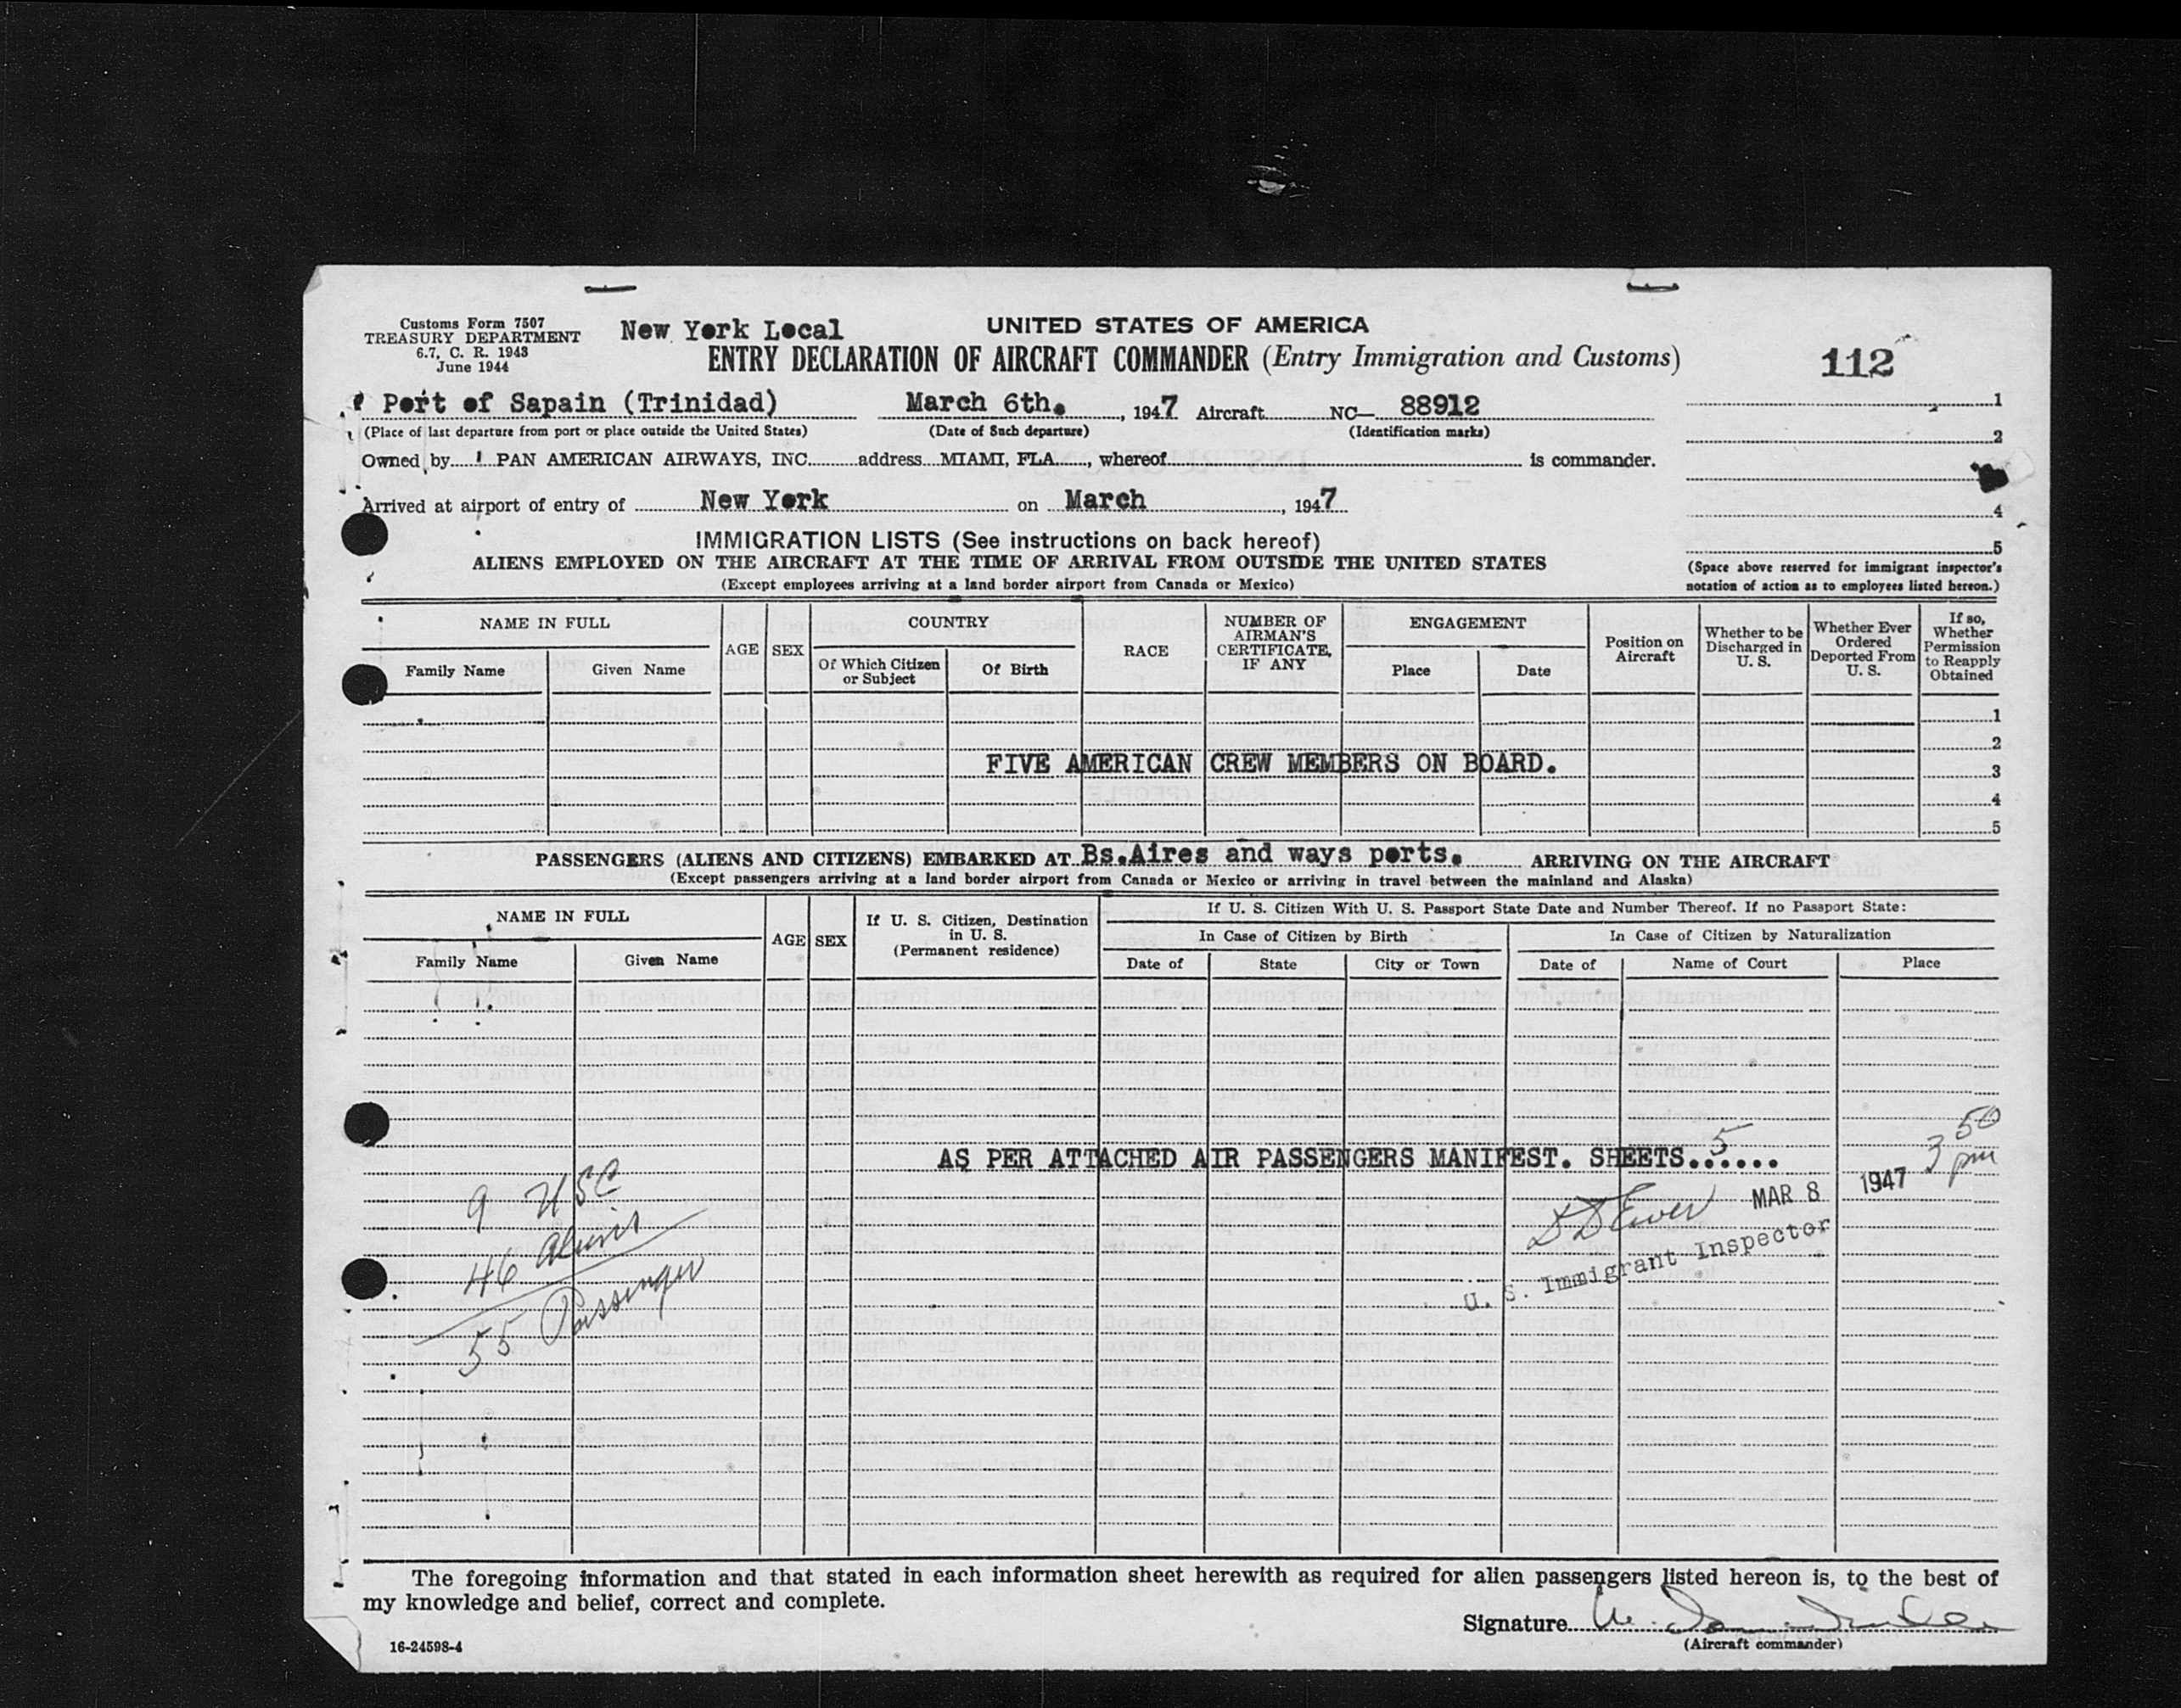 Customs Form 7507
TREASURY DEPARTMENT
6.7, C. R. 1943
June 1944
New York Local
UNITED STATES OF AMERICA
ENTRY DECLARATION OF AIRCRAFT COMMANDER (Entry Immigration and Customs)
112
Port of Sapain (Trinidad) March 6th., 1947 Aircraft NC— 88912
(Place of last departure from port or place outside the United States) (Date of Such departure) (Identification marks)
Owned by PAN AMERICAN AIRWAYS, INC. address MIAMI, FLA., whereof is commander.
Arrived at airport of entry of New York on March, 1947
1
2
4
5
(Space above reserved for immigrant inspector's
notation of action as to employees listed hereon.)
IMMIGRATION LISTS (See instructions on back hereof)
ALIENS EMPLOYED ON THE AIRCRAFT AT THE TIME OF ARRIVAL FROM OUTSIDE THE UNITED STATES
(Except employees arriving at a land border airport from Canada or Mexico)
NAME IN FULL
Family Name
Given Name
AGE
SEX
COUNTRY
Of Which Citizen
or Subject
Of Birth
RACE
NUMBER OF
AIRMAN'S
CERTIFICATE,
IF ANY
ENGAGEMENT
Place
Date
Position on
Aircraft
Whether to be
Discharged in
U. S.
Whether Ever
Ordered
Deported From
U. S.
If so,
Whether
Permission
to Reapply
Obtained
1
2
FIVE AMERICAN CREW MEMBERS ON BOARD.
3
4
5
PASSENGERS (ALIENS AND CITIZENS) EMBARKED AT Bs.Aires and ways ports. ARRIVING ON THE AIRCRAFT
(Except passengers arriving at a land border airport from Canada or Mexico or arriving in travel between the mainland and Alaska)
NAME IN FULL
Family Name
Given Name
AGE
SEX
If U. S. Citizen, Destination
in U. S.
(Permanent residence)
If U. S. Citizen With U. S. Passport State Date and Number Thereof. If no Passport State:
In Case of Citizen by Birth
Date of
State
City or Town
In Case of Citizen by Naturalization
Date of
Name of Court
Place
AS PER ATTACHED AIR PASSENGERS MANIFEST. SHEETS..5....
3 50
pm
MAR 8 1947
U. S. Immigrant Inspector
9 USC
46 Aliens
55 Passenger
The foregoing information and that stated in each information sheet herewith as required for alien passengers listed hereon is, to the best of
my knowledge and belief, correct and complete.
Signature
(Aircraft commander)
16-24598-4